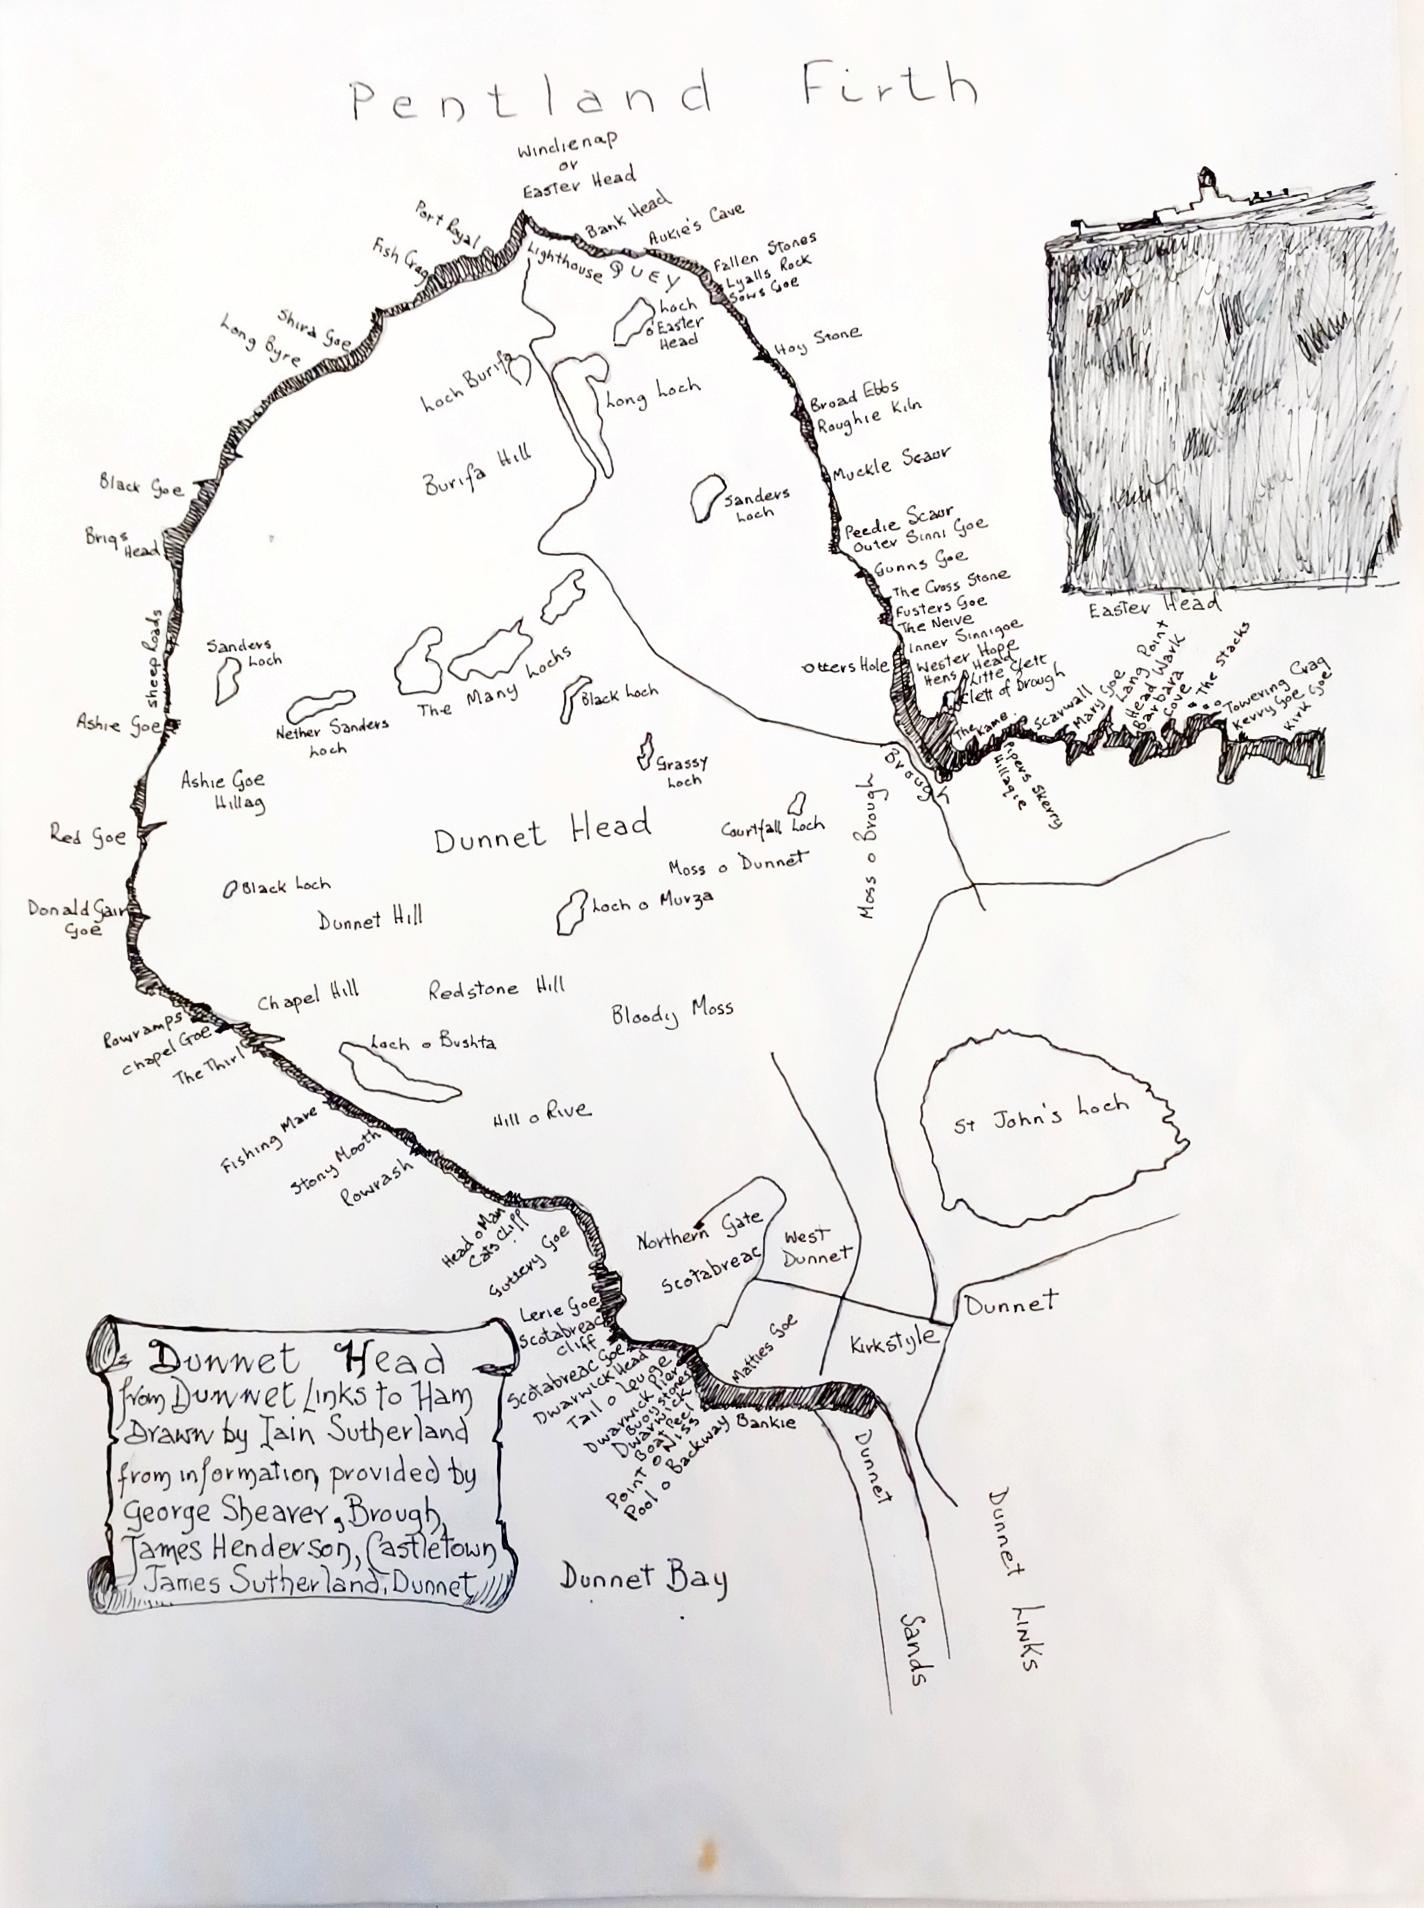 Pentland Firth
Windienap
or
Easter Head
Port Royal
Fish Crag
Shira Goe
Long Byre
Black Goe
Brigs
Head
Sheep Roads
Ashie Goe
Red Goe
Donald Gair
Goe
Rowramps
Chapel Goe
The Thirl
Fishing Mare
Stony Mooth
Rowrash
Head o Man
Cats Cliff
Guttery Goe
Lerie Goe
Scotabreac
Cliff
Scotabreac Goe
Dwarwick Head
Tail o Leuge
Dwarwick Pier
Buoy stones
Dwarwick
Boat Peel
Point o Niss
Pool o Backway
Bankie
Matties Goe
Lighthouse
QUEY
Bank Head
Aukie's Cave
Fallen Stones
Lyalls Rock
Sows Goe
Hoy Stone
Broad Ebbs
Roughie Kiln
Muckle Scaur
Peedie Scaur
Outer Sinni Goe
Gunns Goe
The Cross Stone
Fusters Goe
The Neive
Inner Sinnigoe
Otters Hole
Wester Hope
Hens Head
Little Clett
Clett of Brough
The Kame
Scarwall
Mary Goe
Lang Point
Head Wark
Barbara
Cove
The Stacks
Towering Crag
Kerry Goe
Kirk Goe
Pipers Skerry
Hillagie
Brough
Moss o Brough
Easter Head
Loch
o' Easter
Head
Loch Burifa
Long Loch
Burifa Hill
Sanders
Loch
Sanders
Loch
Nether Sanders
Loch
The Many Lochs
Black Loch
Grassy
Loch
Ashie Goe
Hillag
Dunnet Head
Courtfall Loch
Moss o Dunnet
Black Loch
Dunnet Hill
Loch o Murza
Chapel Hill
Redstone Hill
Bloody Moss
Loch o Bushta
Hill o Rive
St John's Loch
Northern Gate
Scotabreac
West
Dunnet
Dunnet
Kirkstyle
Dunnet
Sands
Dunnet Links
Dunnet Bay
Dunnet Head
from Dunnet Links to Ham
Drawn by Iain Sutherland
from information provided by
George Shearer, Brough,
James Henderson, Castletown
James Sutherland, Dunnet